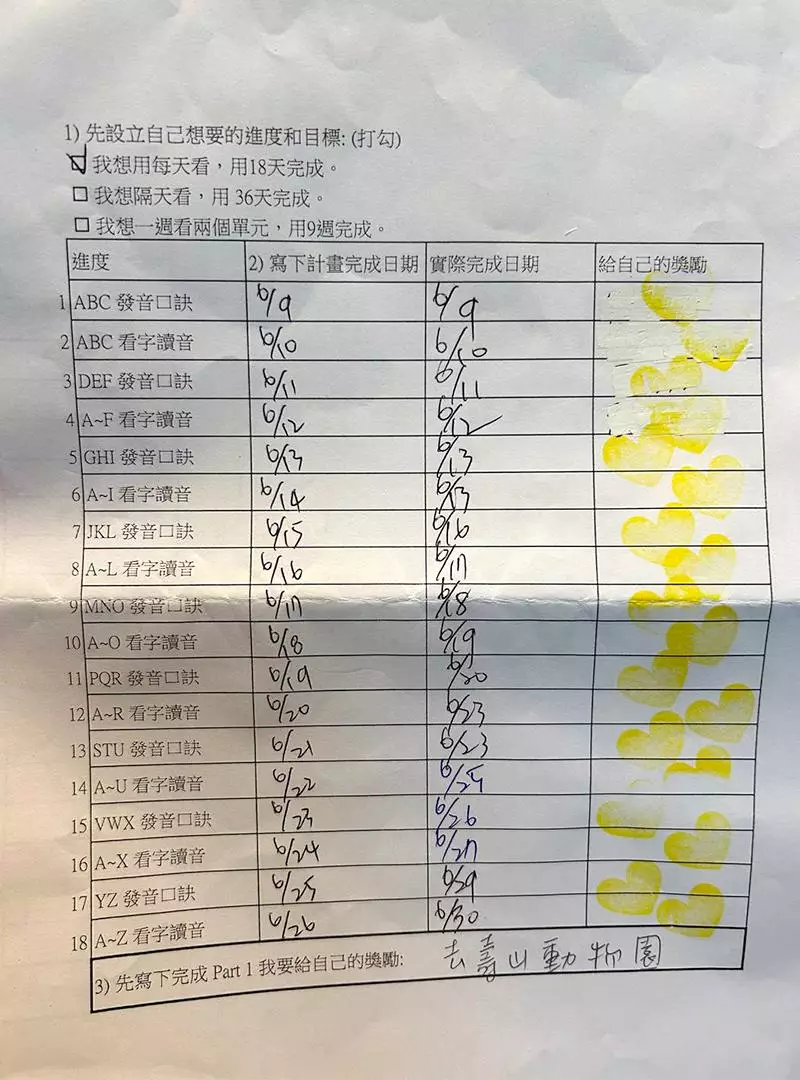 1) 先設立自己想要的進度和目標: (打勾)
☑ 我想用每天看，用18天完成。
□ 我想隔天看，用 36天完成。
□ 我想一週看兩個單元，用9週完成。
進度 2) 寫下計畫完成日期 實際完成日期 給自己的獎勵
1 ABC 發音口訣 6/9 6/9
2 ABC 看字讀音 6/10 6/10
3 DEF 發音口訣 6/11 6/11
4 A~F 看字讀音 6/12 6/12 ✓
5 GHI 發音口訣 6/13 6/13
6 A~I 看字讀音 6/14 6/13
7 JKL 發音口訣 6/15 6/16
8 A~L 看字讀音 6/16 6/17
9 MNO 發音口訣 6/17 6/18
10 A~O 看字讀音 6/18 6/19
11 PQR 發音口訣 6/19 6/20
12 A~R 看字讀音 6/20 6/23
13 STU 發音口訣 6/21 6/23
14 A~U 看字讀音 6/22 6/25
15 VWX 發音口訣 6/23 6/26
16 A~X 看字讀音 6/24 6/27
17 YZ 發音口訣 6/25 6/29
18 A~Z 看字讀音 6/26 6/30
3) 先寫下完成 Part 1 我要給自己的獎勵: 去壽山動物園